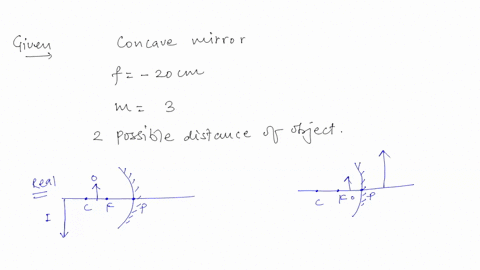 Given Concave mirror
f = - 20 cm
m = 3
2 possible distance of object.
Real
O
I C F P
C F O P